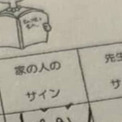 家の人の
サイン
先生
サ